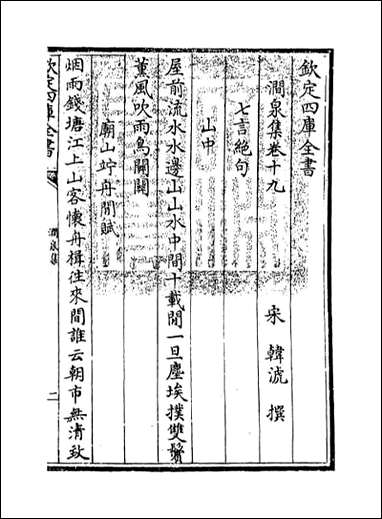 欽定四庫全書
澗泉集卷十九
宋 韓淲 撰
七言絶句
山中
屋前流水水邊山山水中間十載閒一旦塵埃撲雙鬢
薰風吹雨鳥關關
廟山竚舟閒賦
烟雨錢塘江上山客懷舟楫往來間誰云朝市無清致
欽定四庫全書
澗泉集